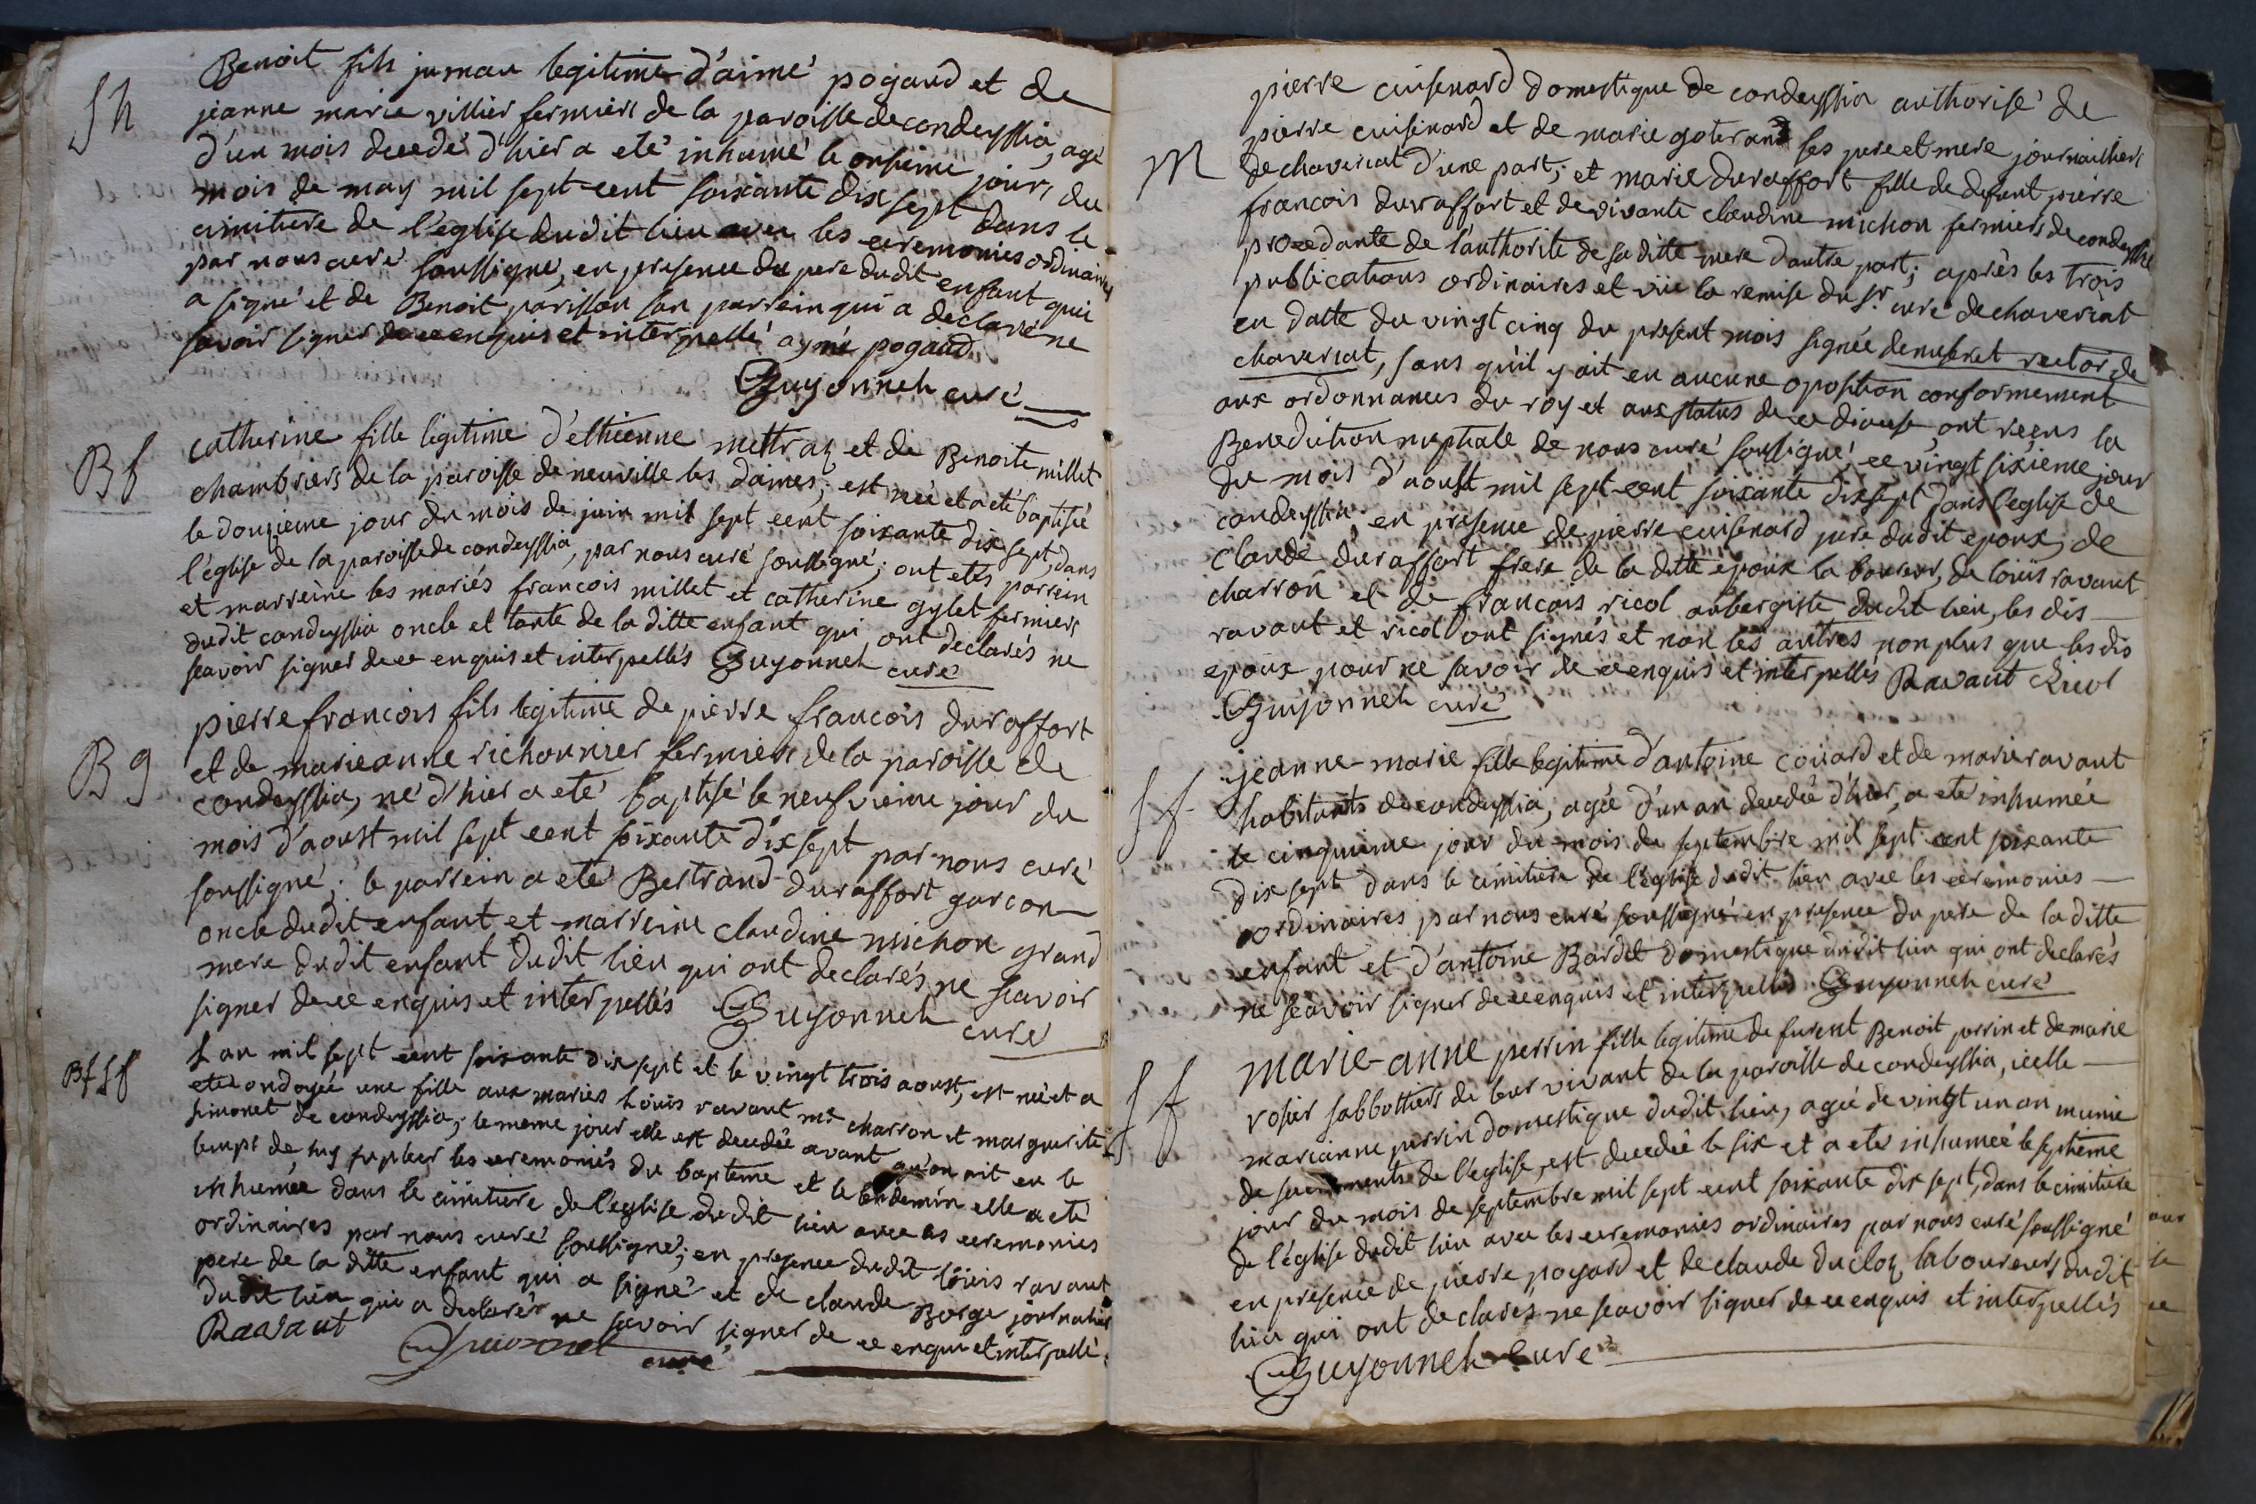 Sh
Benoit fils jumau legitime d'aimé pogaud et de
jeanne marie villier fermiers de la paroisse de condeyssia, agé
d'un mois decedé d'hier a eté inhumé le onsieme jour, du
mois de may mil sept cent soixante dix sept dans le
cimitiere de l'eglise dudit lieu avec les ceremonies ordinaires
par nous curé soussigne, en presence du pere dudit enfant qui
a signé et de Benoit parisson son parrein qui a declaré ne
savoir signer de ce enquis et interpellé aymé pogaud
Guyonneh curé
Bf
catherine fille legitime d'esthienne mettraz et de Benoite millet
chambriers de la paroisse de neuville les dames; est née et a eté baptisée
le douzieme jour du mois de juin mil sept cent soixante dix sept, dans
l'église de la paroisse de condeyssia, par nous curé soussigné; ont etés parrein
et marreine les mariés francois millet et catherine gylet fermiers
dudit condeyssia oncle et tante de la ditte enfant qui ont declarés ne
scavoir signer de ce enquis et interpellés Guyonneh curé
Bg
pierre francois fils legitime de pierre francois duraffort
et de marieanne richonnier fermiers de la paroisse de
condeyssia, né d'hier a eté baptisé le neufvieme jour du
mois d'aoust mil sept cent soixante dix sept par nous curé
soussigné; le parrein a eté Bertrand duraffort garcon
oncle dudit enfant et marreine claudine michon grand
mere dudit enfant dudit lieu qui ont declarés ne scavoir
signer de ce enquis et interpellés Guyonneh
curé
Bf Sf
L'an mil sept cent soixante dix sept et le vingt trois aoust, est née et a
eté ondoyée une fille aux mariés Loüis ravaut me charron et marguerite
simonet de condeyssia; le meme jour elle est decedée avant qu'on ait eu le
temps de luy supleer les ceremonies du bapteme et le lendemin elle a eté
inhumée dans le cimitiere de l'eglise dudit lieu avec les ceremonies
ordinaires par nous curé soussigné; en presence dudit loüis ravaut
pere de la ditte enfant qui a signé et de claude Borge journalier
dudit lieu qui a declarér ne scavoir signer de ce enquis et interpellé.
Ravaut
Guyonnet curé
M
pierre cuisenard domestique de condeyssia authorisé de
pierre cuisinard et de marie goterand ses pere et mere journailliers
de chaveriat d'une part; et marie duraffort fille de defunt pierre
francois duraffort et de vivante claudine michon fermiers de condeyssia
procedante de l'authorite de sa ditte mere d'autre part; après les trois
publications ordinaires et vüe la remise du Sr. curé de chaveriat
en datte du vingt cinq du present mois signée rector de
chaveriat, sans qu'il y ait eu aucune oposition conformement
aux ordonnances du roy et aux status de ce diocese, ont recus la
Benediction nuptiale de nous curé soussigné, ce vingt sixieme jour
du mois d'aoust mil sept cent soixante dix sept dans l'eglise de
condeyssia en presence de pierre cuisenard pere dudit epoux, de
claude duraffort frere de la ditte epoux laboureur, de loüis ravaut
charron et de francois ricol aubergiste dudit lieu, les dis
ravaut et ricol ont signés et non les autres non plus que les dis
epoux pour ne savoir de ce enquis et interpellés Ravaut Ricol
Guyonneh curé
Sf
jeanne-marie fille legitime d'antoine coüard et de marie ravaut
habitants de condeyssia; agée d'un an decedée d'hier, a eté inhumée
le cinquieme jour du mois de septembre mil sept cent soixante
dix sept dans le cimitiere de l'église dudit lieu avec les ceremonies
ordinaires par nous curé soussigné en presence du pere de la ditte
enfant et d'antoine Bardet domestique dudit lieu qui ont declarés
ne scavoir signer de ce enquis et interpellés Guyonneh curé
Sf
marie-anne perrin fille legitime de furent Benoit perrin et de marie
rosier sabbottiers de leur vivant de la paroisse de condeyssia, icelle
marianne perrin domestique dudit lieu, agée de vingt un an munie
de sacrements de l'église, est decedée le six et a eté inhumée le septieme
jour du mois de septembre mil sept cent soixante dix sept, dans le cimitiere
de l'église dudit lieu avec les ceremonies ordinaires par nous curé soussigné
en presence de pierre poyard et de claude ducloz laboureurs dudit
lieu qui ont declarés ne scavoir signer de ce enquis et interpellés
Guyonneh Curé